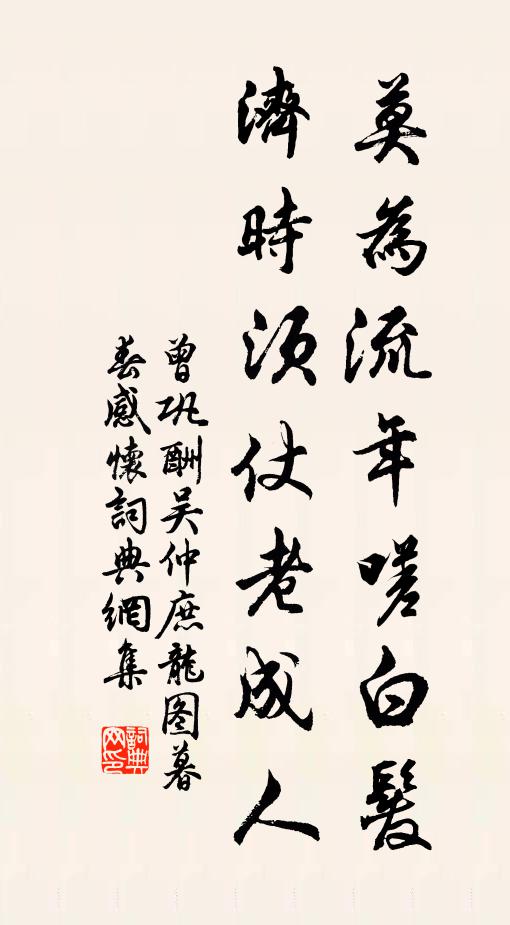 莫為流年嗟白髮
濟時須仗老成人
曾巩酬吴仲庶龍图暮
春感懷詞典網集
詞典网印